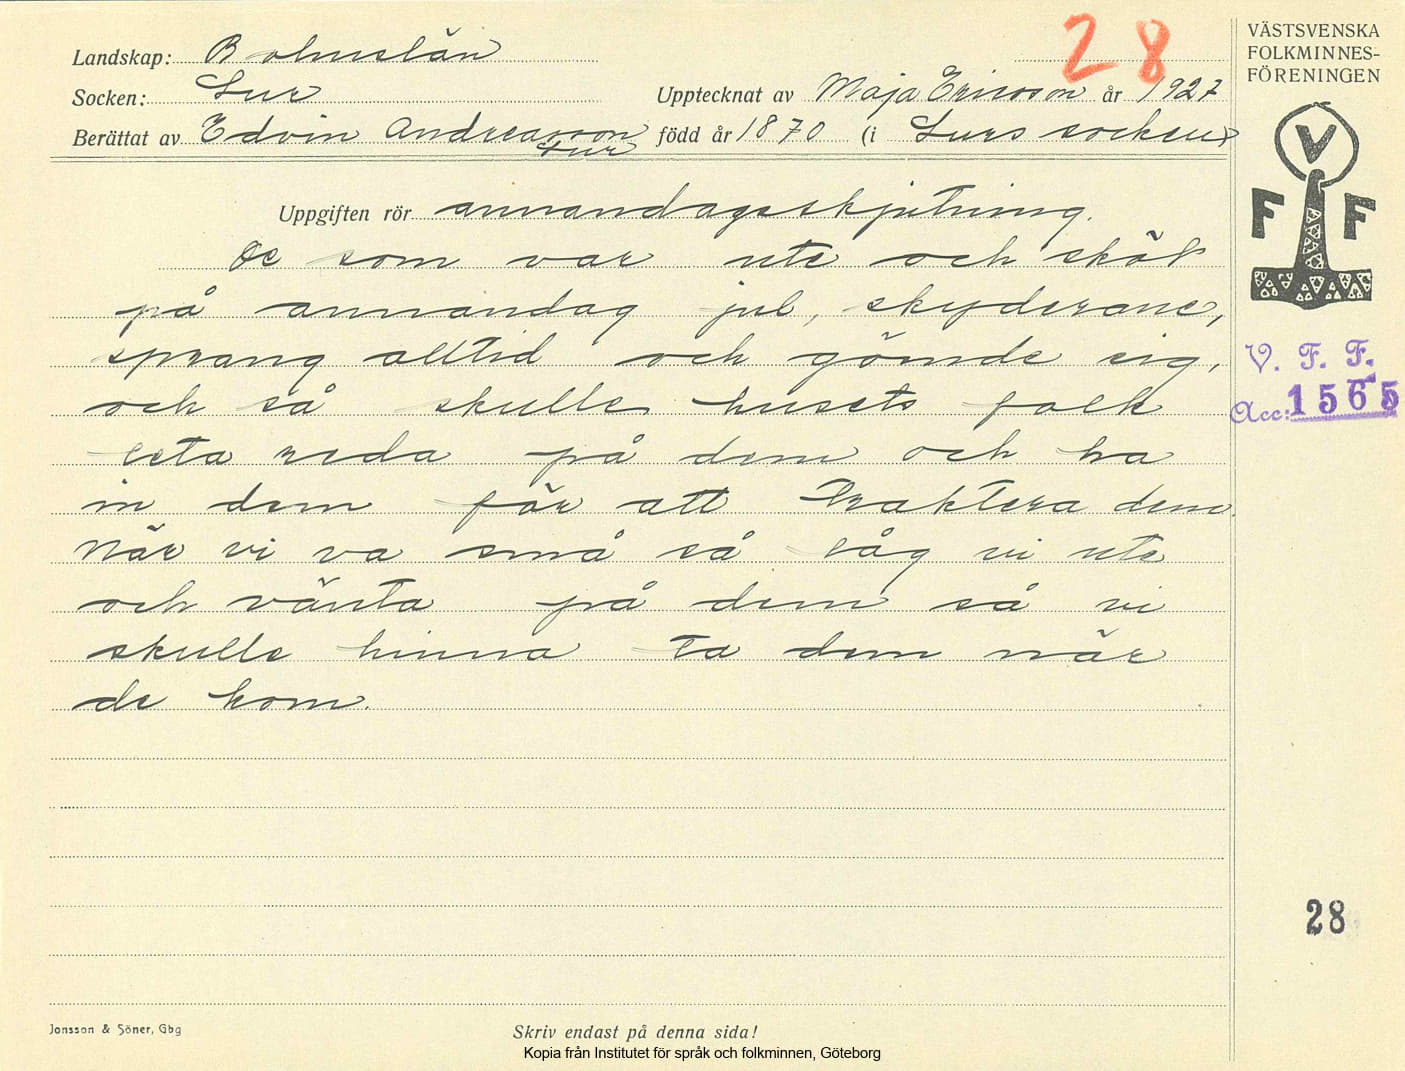 28
VÄSTSVENSKA
FOLKMINNES-
FÖRENINGEN
Landskap: Bohuslän
Socken: Lur
Upptecknat av Maja Ericsson år 1927
Berättat av Edvin Andreasson Lur född år 1870 (i Lurs socken)
V
F F
Uppgiften rör annandagsskjutning.
De som var ute och sköt
på annandag jul, skyderane,
sprang alltid och gömde sig,
och så skulle husets folk
leta reda på dem och ha
in dem för att traktera dem.
När vi va små så låg vi ute
och vänta på dem så vi
skulle hinna ta dem när
de kom.
V. F. F.
Acc: 1565
28
Jonsson & Söner, Gbg
Skriv endast på denna sida!
Kopia från Institutet för språk och folkminnen, Göteborg